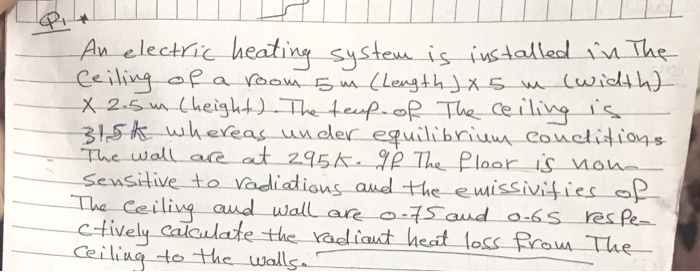 Q1 *
An electric heating system is installed in The
Ceiling of a room 5 m (Length) x 5 m (width)
x 2.5 m (height). The temp. of The ceiling is
315K whereas under equilibrium conditions
The wall are at 295K. If The floor is non-
Sensitive to radiations and the emissivities of
The Ceiling and wall are 0.75 and 0.65 respe-
ctively calculate the radiant heat loss from The
ceiling to the walls.